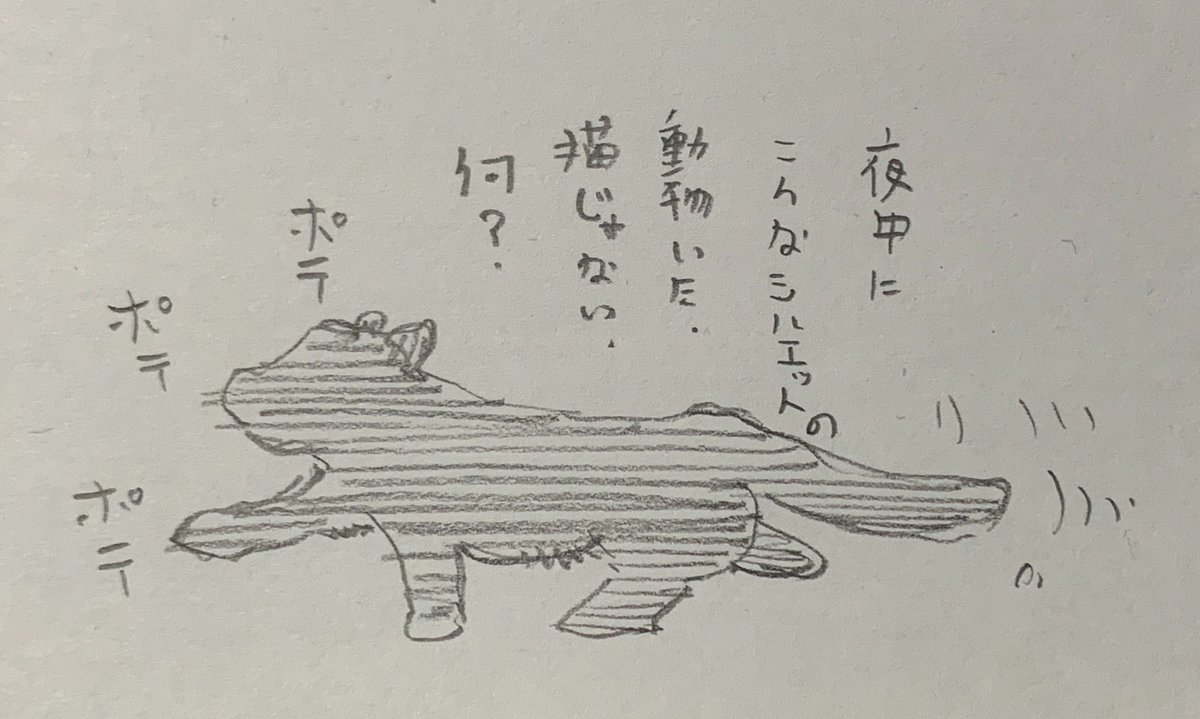 夜中に
こんなシルエットの
動物いた.
猫じゃない.
何?
ポテ
ポテ
ポテ